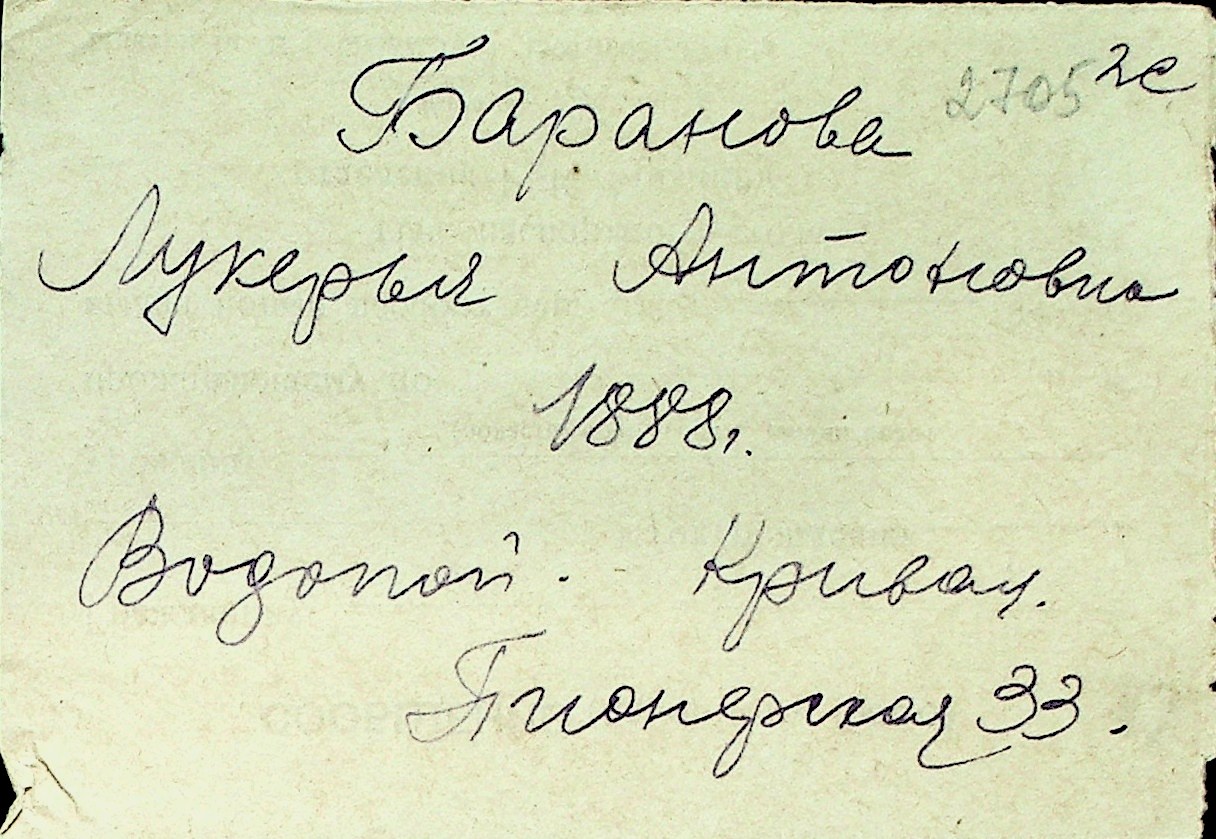 Баранова 2705 2с
Лукерья Антоновна
1888г.
Водопой. Кривая.
Пионерская 33.